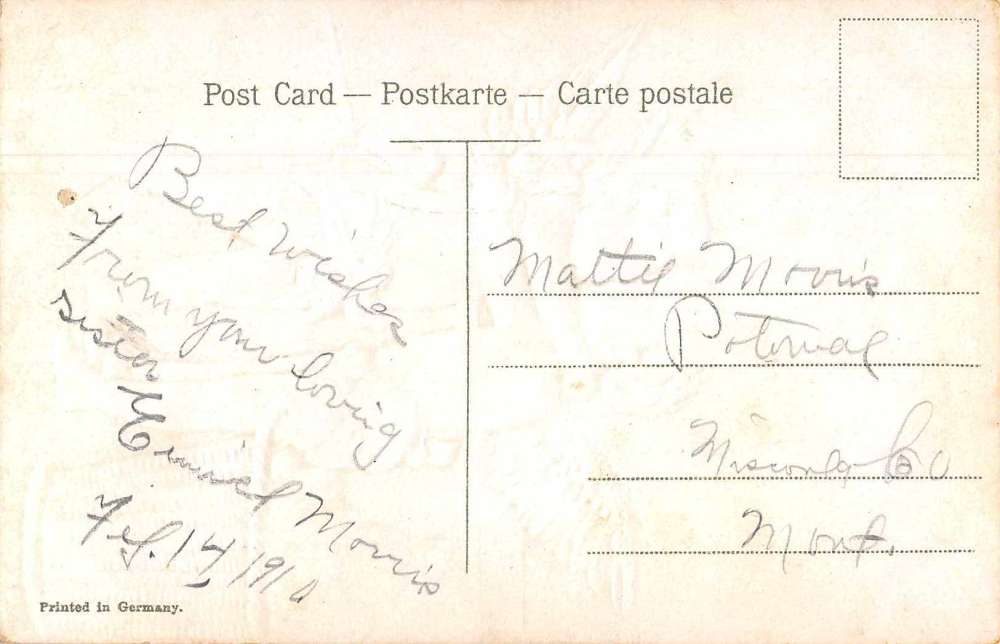 Post Card — Postkarte — Carte postale
Best wishes
from your loving
sister
Morris
Feb. 14 1910
Mattie Morris
Potomac
Co
Mont.
Printed in Germany.